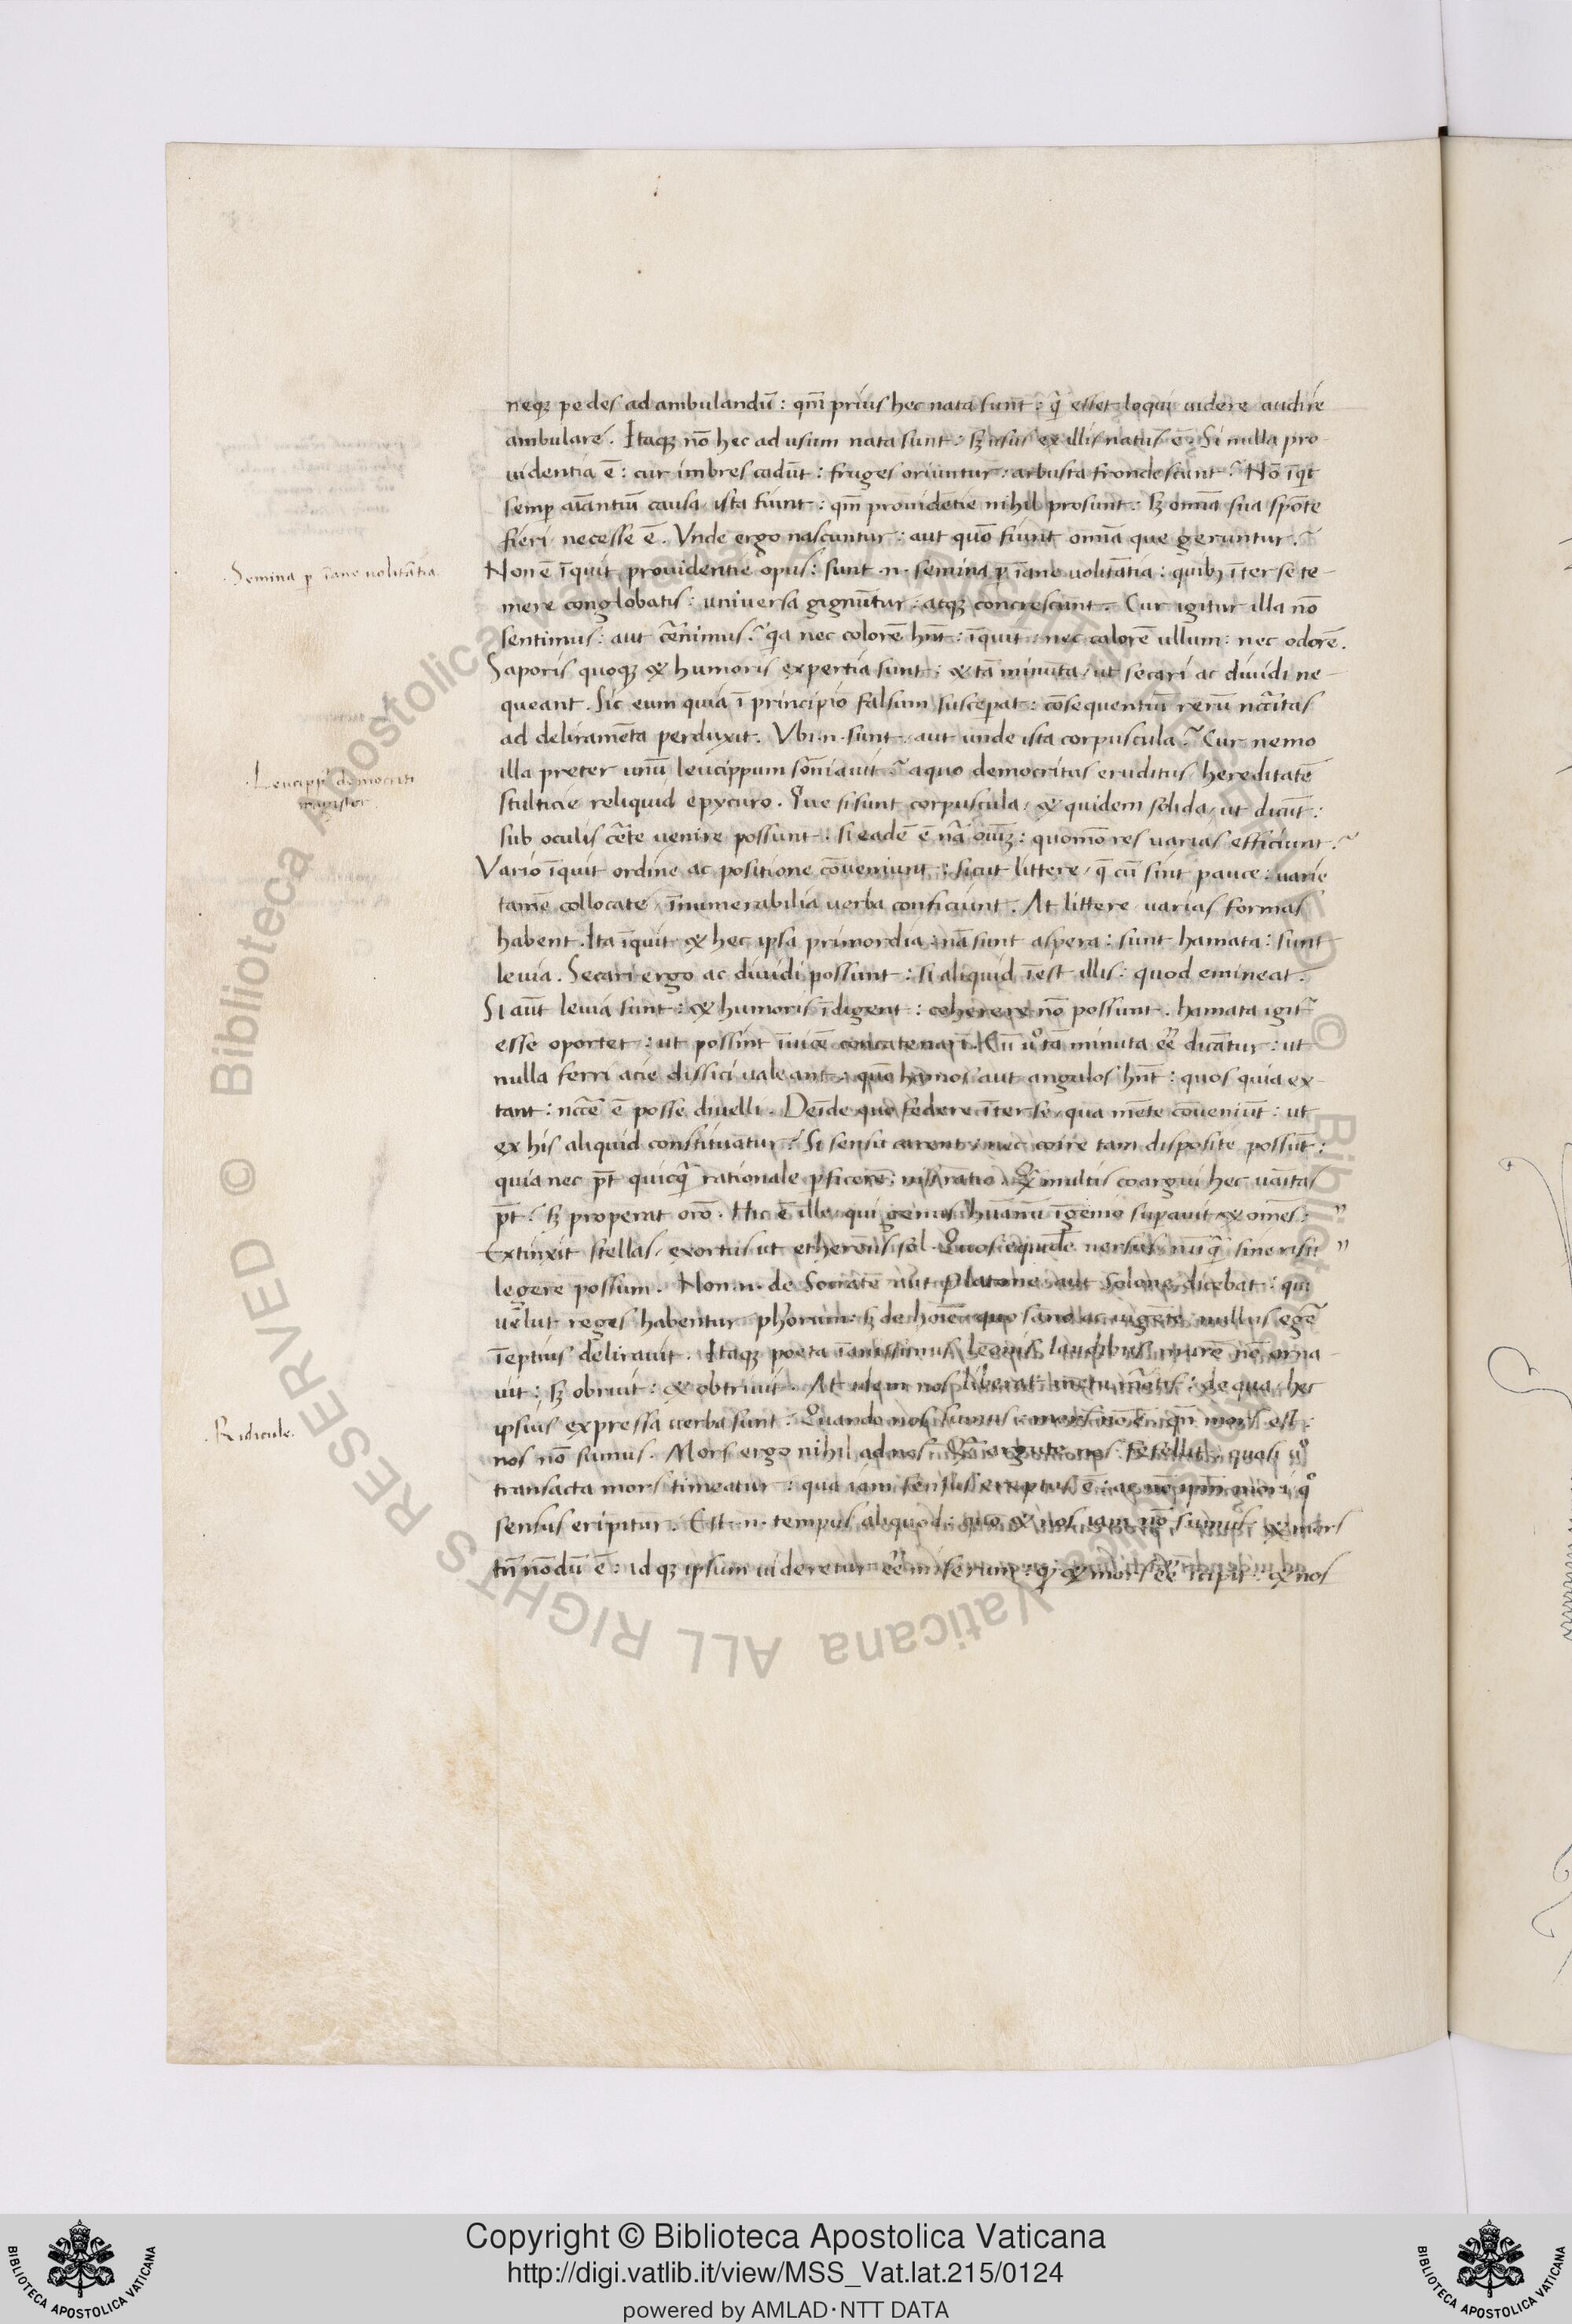 neqȝ pedes ad ambulandū : qm̄ prius hec nata sunt : q̄ esset loqui uidere audire
ambulare . Itaqȝ nō hec ad usum nata sunt : sȝ usus ex illis natus ē . Si nulla pro-
uidentia ē : cur imbres cadūt : fruges oriuntur : arbusta frondescunt ? Nō īqt
semp aīantiū causa ista fiunt : qm̄ prouidētie nihil prosunt : sȝ omīa sua spōte
fieri necesse ē . Vnde ergo nascuntur : aut quō fiunt omīa que geruntur ?
Semina p īane uolitātia.
Non ē īquit prouidentie opus : sunt .n. semina p īane uolitātia : quibȝ īter se te-
mere conglobatis : uniuersa gignūtur : atqȝ concrescunt . Cur igitur illa nō
sentimus : aut cēnimus ? qa nec colorē hn̄t : īquit : nec calorē ullum : nec odorē .
Saporis quoqȝ & humoris expertia sunt : & tā minuta / ut secari ac diuidi ne-
queant . Sic eum quia ī principio falsum suscepat : cōsequentiū rerū nc̄citas
ad deliramēta perduxit . Vbi .n. sunt / aut unde ista corpuscula ? Cur nemo
Leucipp' democriti
magister
illa preter unū leucippum sōniauit ? a quo democritas eruditus hereditatē
stulticie reliquid epycuro . Que si sunt corpuscula / & quidem solida / ut dicūt :
sub oculis cēte uenire possunt . si eadē ē nā oīuȝ : quomō res uarias efficiunt ?
Vario īquit ordine ac positione cōueniunt : sicut littere / q̄ cū sint pauce : uarie
tamē collocate īnumerabilia uerba conficiunt . At littere uarias formas
habent . Ita īquit & hec ipsa primordia : nā sunt aspera : sunt hamata : sunt
leuia . Secari ergo ac diuidi possunt : si aliquid īest illis : quod emineat .
Si aūt leuia sunt : & humoris īdigent : coherere nō possunt . hamata igit̄
esse oportet : ut possint īuicē concatenari . Cū uº tā minuta eē dicātur : ut
nulla ferri acie dissici ualeant : quō hamos aut angulos hn̄t : quos quia ex-
tant : nc̄cē ē posse diuelli . Deīde quo federe īter se / qua mēte cōueniūt : ut
ex his aliquid constituatur ? Si sensu carent : nec coire tam disposite possūt :
quia nec pt̄ quicq̄ rationale pficere : nisi ratio . Q̄ multis coargui hec uāitas
pt̄ ? sȝ properat orō . Hic ē ille qui genus huānū īgenio supauit & omēs : "
Extinxit stellas / exortus ut etherius sol . Quos equidē uersus nūq̄ sine risu "
legere possum . Non .n. de Socrate aut platone aut Solone dicebat : qui
uēlut reges habentur phōrum : sȝ de hoīe quo sano ac uigēte nullus egē
īeptius delirauit . Itaqȝ poeta īanissimus leonis laudibus murē nō orna-
uit : sȝ obruit : & obtriuit . At idem nos liberat metu mōtis : de qua hec
Ridicule.
ipsius expressa uerba sunt . Quando nos sumus : mors nō ē : qn̄ mors est :
nos nō sumus . Mors ergo nihil ad nos . Q̄ argute nos fefellit : quasi uº
transacta mors timeatur : qua iam sensus ereptus ē : ac nō ipm̄ mori qº
sensus eripitur . Est .n. tempus aliquod : quo & nos iam nō sumus & mors
tn̄ nōdū ē : id qȝ ipsum uideretur eē miserum : q & mors eē īcipit : & nos
© Biblioteca Apostolica Vaticana ALL RIGHTS RESERVED
Copyright © Biblioteca Apostolica Vaticana
http://digi.vatlib.it/view/MSS_Vat.lat.215/0124
powered by AMLAD·NTT DATA
BIBLIOTECA APOSTOLICA VATICANA
BIBLIOTECA APOSTOLICA VATICANA